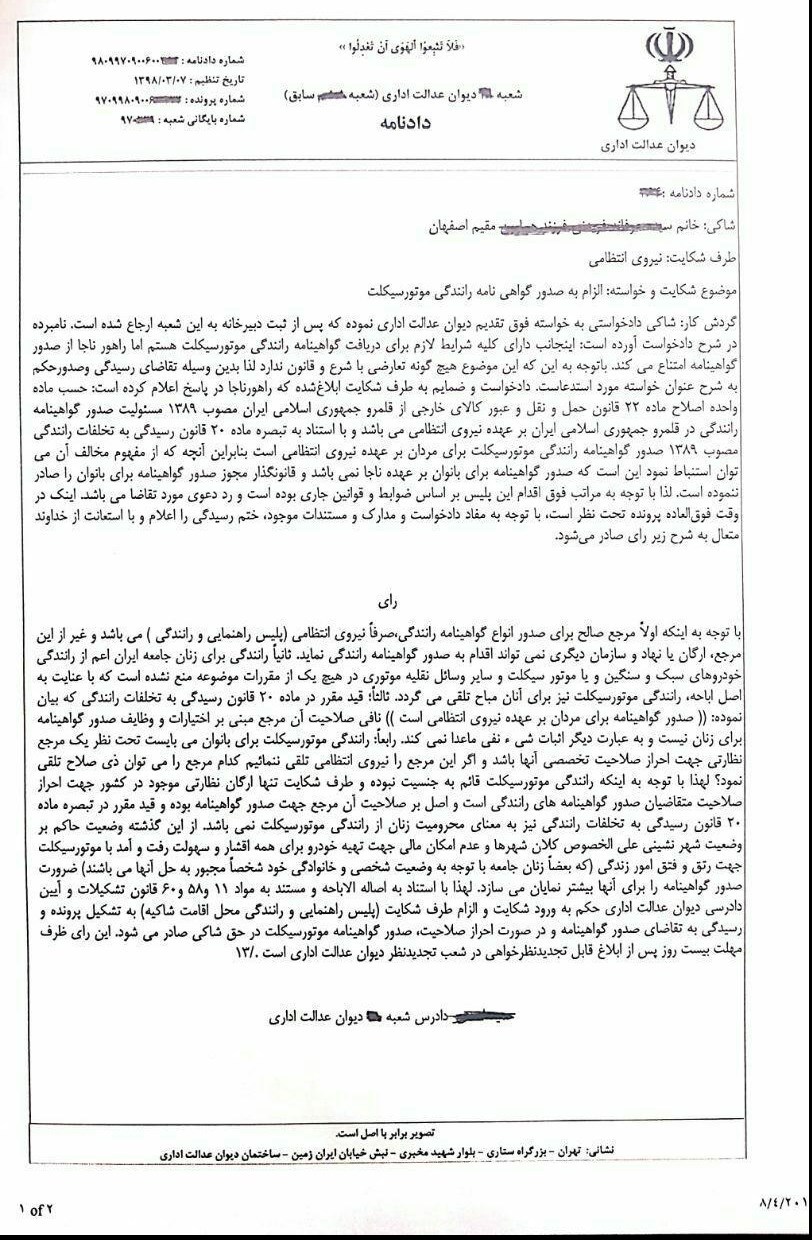 «فَلاَ تَتَّبِعُوا اَلْهَوَىٰ أَنْ تَعْدِلُوا»
شماره دادنامه : ۹۸۰۹۹۷۰۹۰۰۶۰۰
تاریخ تنظیم : ۱۳۹۸/۰۳/۰۷
شماره پرونده : ۹۷۰۹۹۸۰۹۰۰۶
شماره بایگانی شعبه : ۹۷۰
شعبه دیوان عدالت اداری (شعبه سابق)
دادنامه
دیوان عدالت اداری
شماره دادنامه :
شاکی: خانم مقیم اصفهان
طرف شکایت: نیروی انتظامی
موضوع شکایت و خواسته: الزام به صدور گواهی نامه رانندگی موتورسیکلت
گردش کار: شاکی دادخواستی به خواسته فوق تقدیم دیوان عدالت اداری نموده که پس از ثبت دبیرخانه به این شعبه ارجاع شده است. نامبرده
در شرح دادخواست آورده است: اینجانب دارای کلیه شرایط لازم برای دریافت گواهینامه رانندگی موتورسیکلت هستم اما راهور ناجا از صدور
گواهینامه امتناع می کند. باتوجه به این که این موضوع هیچ گونه تعارضی با شرع و قانون ندارد لذا بدین وسیله تقاضای رسیدگی وصدورحکم
به شرح عنوان خواسته مورد استدعاست. دادخواست و ضمایم به طرف شکایت ابلاغ‌شده که راهورناجا در پاسخ اعلام کرده است: حسب ماده
واحده اصلاح ماده ۲۲ قانون حمل و نقل و عبور کالای خارجی از قلمرو جمهوری اسلامی ایران مصوب ۱۳۸۹ مسئولیت صدور گواهینامه
رانندگی در قلمرو جمهوری اسلامی ایران بر عهده نیروی انتظامی می باشد و با استناد به تبصره ماده ۲۰ قانون رسیدگی به تخلفات رانندگی
مصوب ۱۳۸۹ صدور گواهینامه رانندگی موتورسیکلت برای مردان بر عهده نیروی انتظامی است بنابراین آنچه که از مفهوم مخالف آن می
توان استنباط نمود این است که صدور گواهینامه برای بانوان بر عهده ناجا نمی باشد و قانونگذار مجوز صدور گواهینامه برای بانوان را صادر
ننموده است. لذا با توجه به مراتب فوق اقدام این پلیس بر اساس ضوابط و قوانین جاری بوده است و رد دعوی مورد تقاضا می باشد. اینک در
وقت فوق‌العاده پرونده تحت نظر است، با توجه به مفاد دادخواست و مدارک و مستندات موجود، ختم رسیدگی را اعلام و با استعانت از خداوند
متعال به شرح زیر رای صادر می‌شود.
رای
با توجه به اینکه اولاً مرجع صالح برای صدور انواع گواهینامه رانندگی،صرفاً نیروی انتظامی (پلیس راهنمایی و رانندگی ) می باشد و غیر از این
مرجع، ارگان یا نهاد و سازمان دیگری نمی تواند اقدام به صدور گواهینامه رانندگی نماید. ثانیاً رانندگی برای زنان جامعه ایران اعم از رانندگی
خودروهای سبک و سنگین و یا موتور سیکلت و سایر وسائل نقلیه موتوری در هیچ یک از مقررات موضوعه منع نشده است که با عنایت به
اصل اباحه، رانندگی موتورسیکلت نیز برای آنان مباح تلقی می گردد. ثالثاً: قید مقرر در ماده ۲۰ قانون رسیدگی به تخلفات رانندگی که بیان
نموده: (( صدور گواهینامه برای مردان بر عهده نیروی انتظامی است )) نافی صلاحیت آن مرجع مبنی بر اختیارات و وظایف صدور گواهینامه
برای زنان نیست و به عبارت دیگر اثبات شی ء نفی ماعدا نمی کند. رابعاً: رانندگی موتورسیکلت برای بانوان می بایست تحت نظر یک مرجع
نظارتی جهت احراز صلاحیت تخصصی آنها باشد و اگر این مرجع را نیروی انتظامی تلقی ننمائیم کدام مرجع را می توان ذی صلاح تلقی
نمود؟ لهذا با توجه به اینکه رانندگی موتورسیکلت قائم به جنسیت نبوده و طرف شکایت تنها ارگان نظارتی موجود در کشور جهت احراز
صلاحیت متقاضیان صدور گواهینامه های رانندگی است و اصل بر صلاحیت آن مرجع جهت صدور گواهینامه بوده و قید مقرر در تبصره ماده
۲۰ قانون رسیدگی به تخلفات رانندگی نیز به معنای محرومیت زنان از رانندگی موتورسیکلت نمی باشد. از این گذشته وضعیت حاکم بر
وضعیت شهر نشینی علی الخصوص کلان شهرها و عدم امکان مالی جهت تهیه خودرو برای همه اقشار و سهولت رفت و آمد با موتورسیکلت
جهت رتق و فتق امور زندگی (که بعضاً زنان جامعه با توجه به وضعیت شخصی و خانوادگی خود شخصاً مجبور به حل آنها می باشند) ضرورت
صدور گواهینامه را برای آنها بیشتر نمایان می سازد. لهذا با استناد به اصاله الاباحه و مستند به مواد ۱۱ و۵۸ و۶۰ قانون تشکیلات و آیین
دادرسی دیوان عدالت اداری حکم به ورود شکایت و الزام طرف شکایت (پلیس راهنمایی و رانندگی محل اقامت شاکیه) به تشکیل پرونده و
رسیدگی به تقاضای صدور گواهینامه و در صورت احراز صلاحیت، صدور گواهینامه موتورسیکلت در حق شاکی صادر می شود. این رای ظرف
مهلت بیست روز پس از ابلاغ قابل تجدیدنظرخواهی در شعب تجدیدنظر دیوان عدالت اداری است ./۱۳
دادرس شعبه دیوان عدالت اداری
تصویر برابر با اصل است.
نشانی: تهران - بزرگراه ستاری - بلوار شهید مخبری - نبش خیابان ایران زمین - ساختمان دیوان عدالت اداری
۱ of ۲
۸/٤/۲۰۱